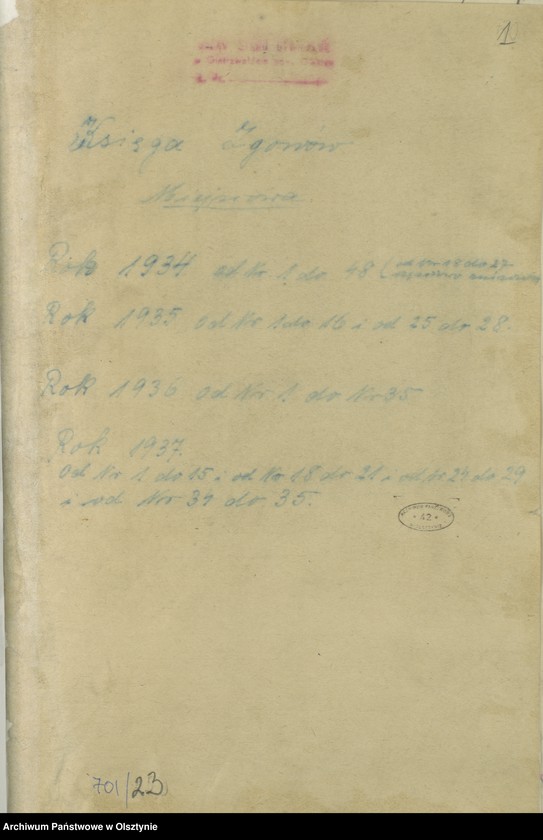 1
Księga Zgonów
Miejscowa.
Rok 1934 od Nr 1 do 48 (od Nr 18 do 27
Rok 1935 od Nr 1 do 16 i od 25 do 28.
Rok 1936 od Nr 1 do Nr 35
Rok 1937.
Od Nr 1 do 15 i od Nr 18 do 21 i od Nr 24 do 29
i od Nr 34 do 35.
42
701/23
Archiwum Państwowe w Olsztynie